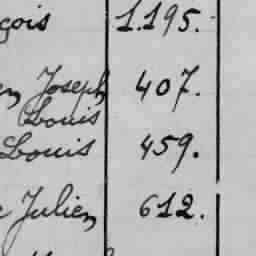 çois 1.195.
en Joseph 407.
Louis
Louis 459.
Julien 612.